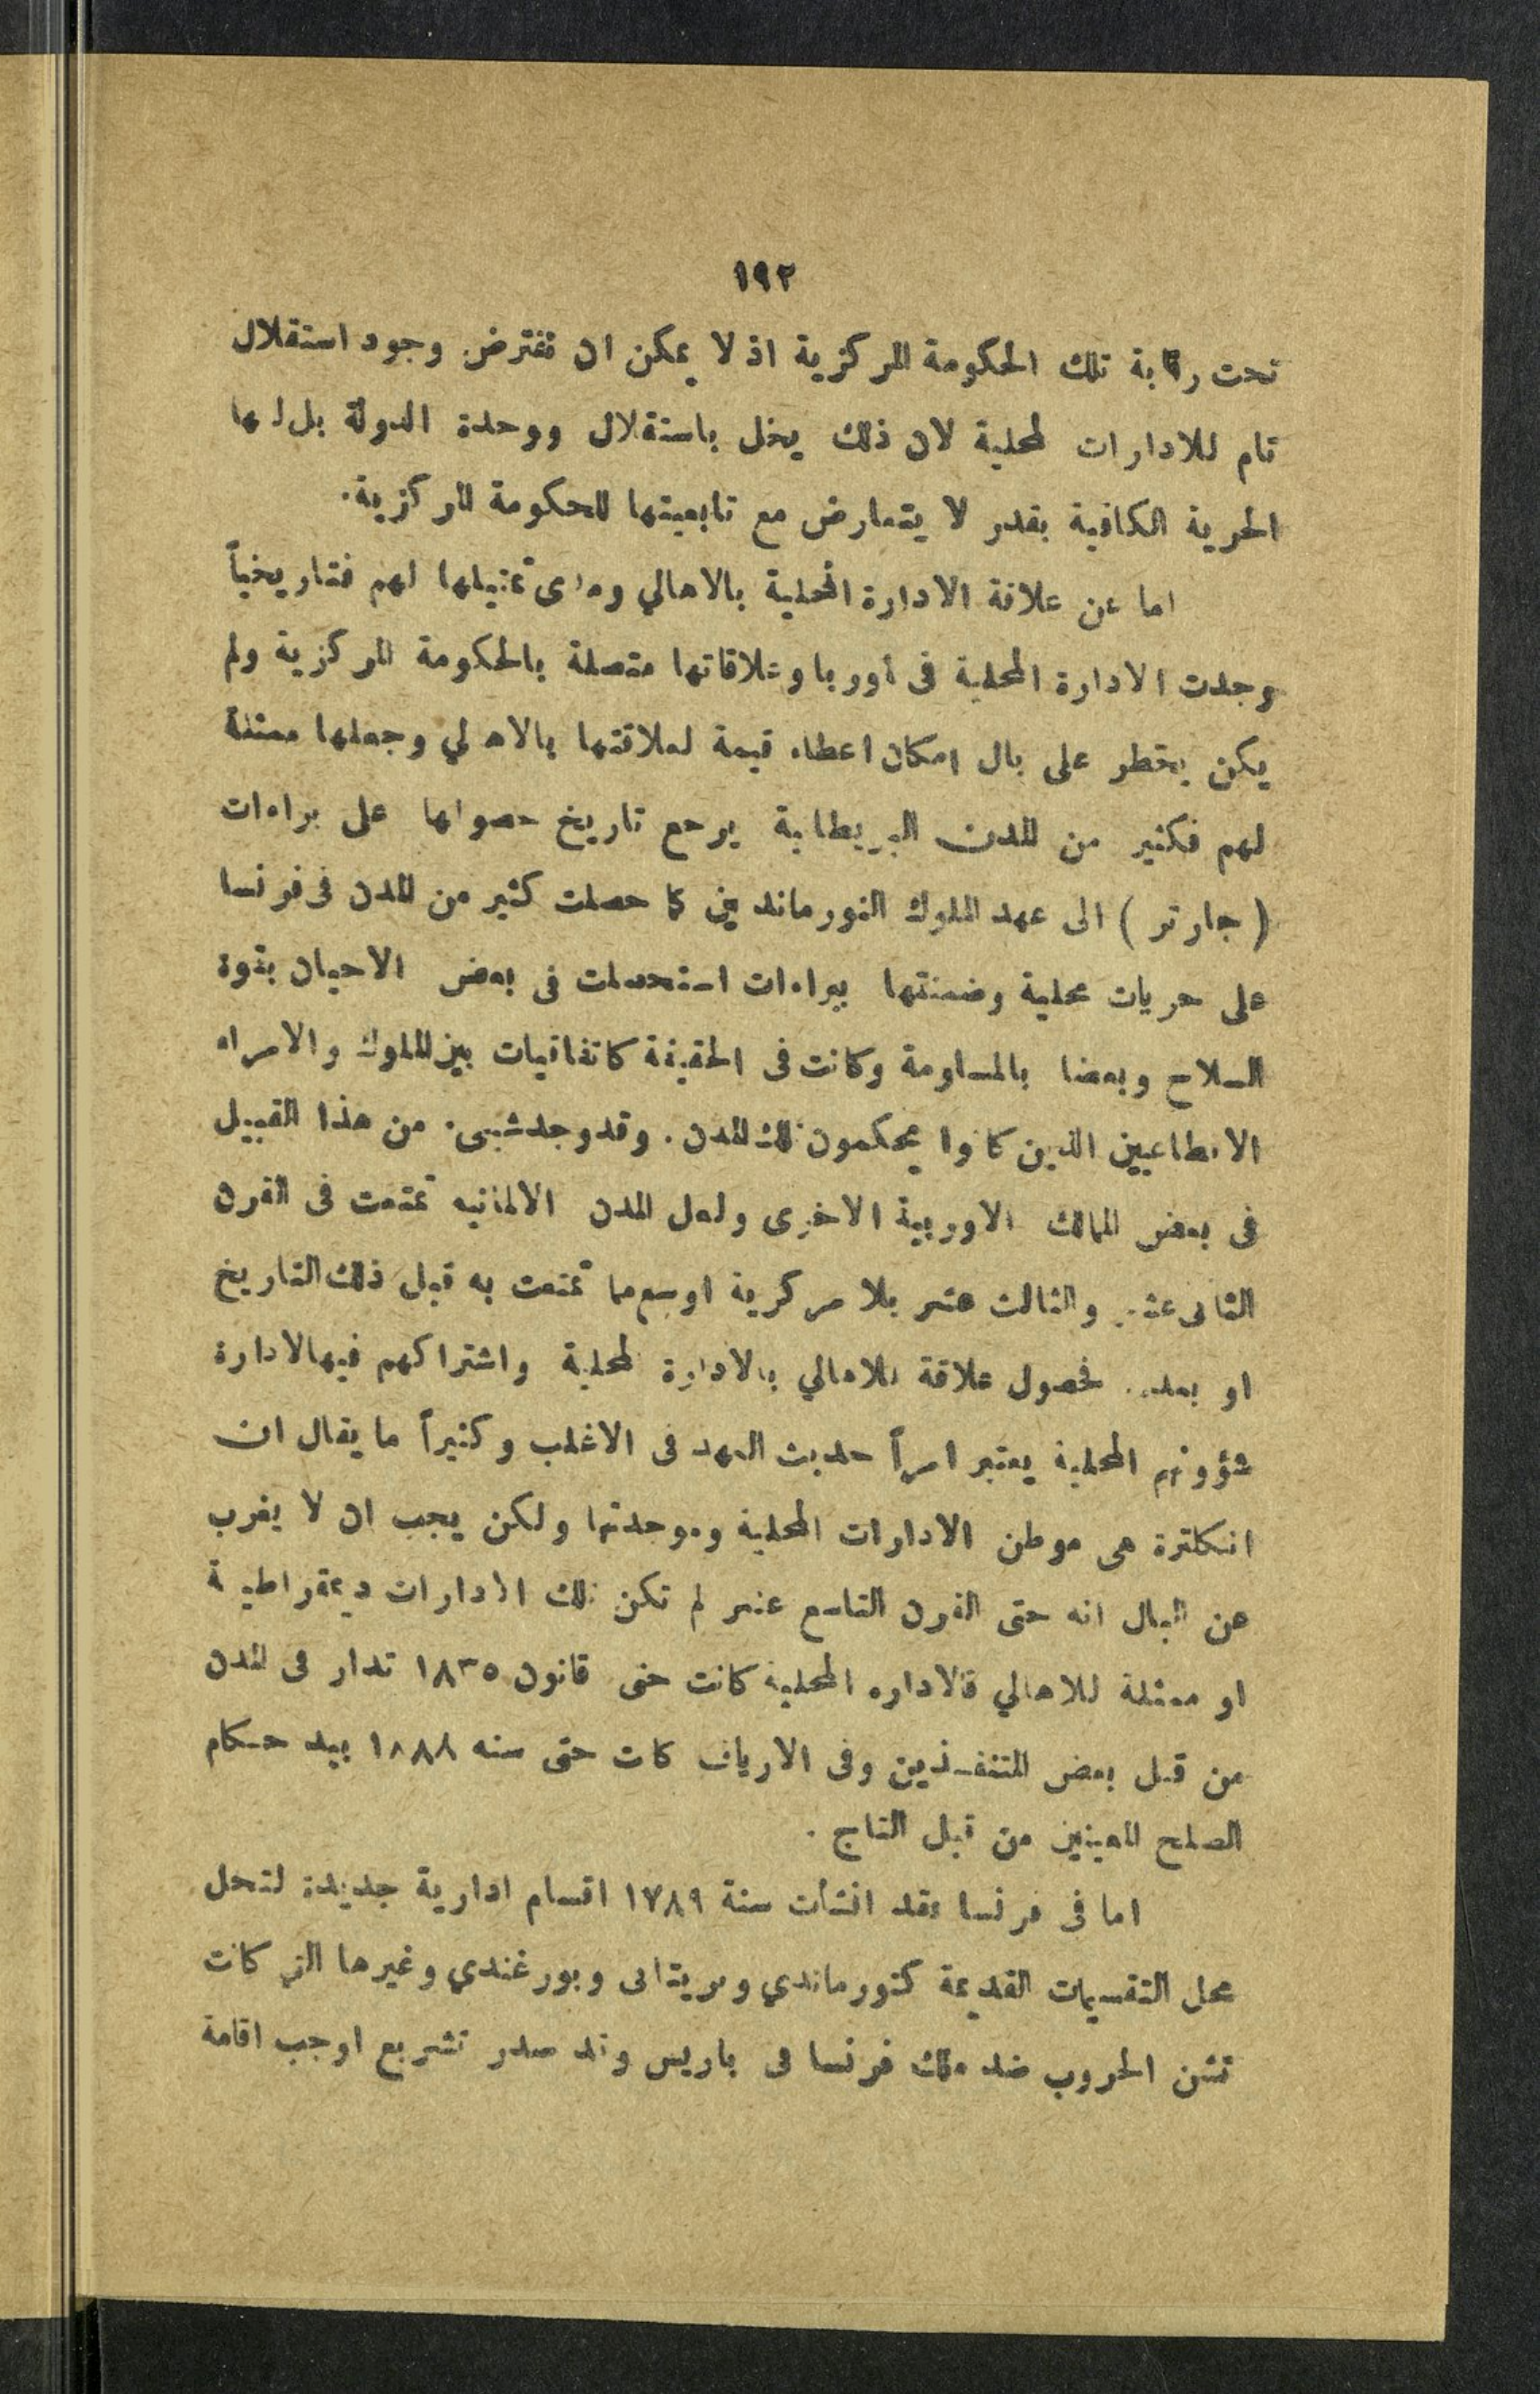 ١٩٢
تحت رقابة تلك الحكومة المركزية اذ لا يمكن ان نفترض وجود استقلال
تام للادارات المحلية لان ذلك يخل باستقلال ووحدة الدولة بل لها
الحرية الكافية بقدر لا يتعارض مع تابعيتها للحكومة المركزية.
اما عن علاقة الادارة المحلية بالاهالي ومدى تمثيلها لهم فتاريخياً
وجدت الادارة المحلية فى أوربا وعلاقاتها متصلة بالحكومة المركزية ولم
يكن يخطر على بال امكان اعطاء قيمة لعلاقتها بالاهالي وجعلها ممثلة
لهم فكثير من المدن البريطانية يرجع تاريخ حصولها على براءات
( جارتر ) الى عهد الملوك النورمانديين كما حصلت كثير من المدن فى فرنسا
على حريات محلية وضمنتها ببراءات استحصلت فى بعض الاحيان بقوة
السلاح وبعضا بالمساومة وكانت فى الحقيقة كاتفاقيات بين الملوك والامراء
الاقطاعيين الذين كانوا يحكمون تلك المدن . وقد وجد شيىء من هذا القبيل
فى بعض الممالك الاوربية الاخرى ولعل المدن الالمانيه تمتعت فى القرن
الثانى عشر والثالث عشر بلا مركزية اوسع مما تمتعت به قبل ذلك التاريخ
او بعده . فحصول علاقة للاهالي بالادارة المحلية واشتراكهم فيها لادارة
شؤونهم المحلية يعتبر امراً حديث العهد فى الاغلب وكثيراً ما يقال ان
انكلترة هى موطن الادارات المحلية وموحدتها ولكن يجب ان لا يغرب
عن البال انه حتى القرن التاسع عشر لم تكن تلك الادارات ديمقراطية
او ممثلة للاهالي فالاداره المحلية كانت حتى قانون ١٨٣٥ تدار فى المدن
من قبل بعض المتنفـذين وفى الارياف كانت حتى سنه ١٨٨٨ بيد حـكام
الصلح المعينين من قبل التاج .
اما فى فرنسا فقد انشأت سنة ١٧٨٩ اقسام ادارية جديدة لتحل
محل التقسيمات القديمة كنورماندي وبريتانى وبورغندي وغيرها التى كانت
تشن الحروب ضد ملك فرنسا فى باريس وقد صدر تشريع اوجب اقامة